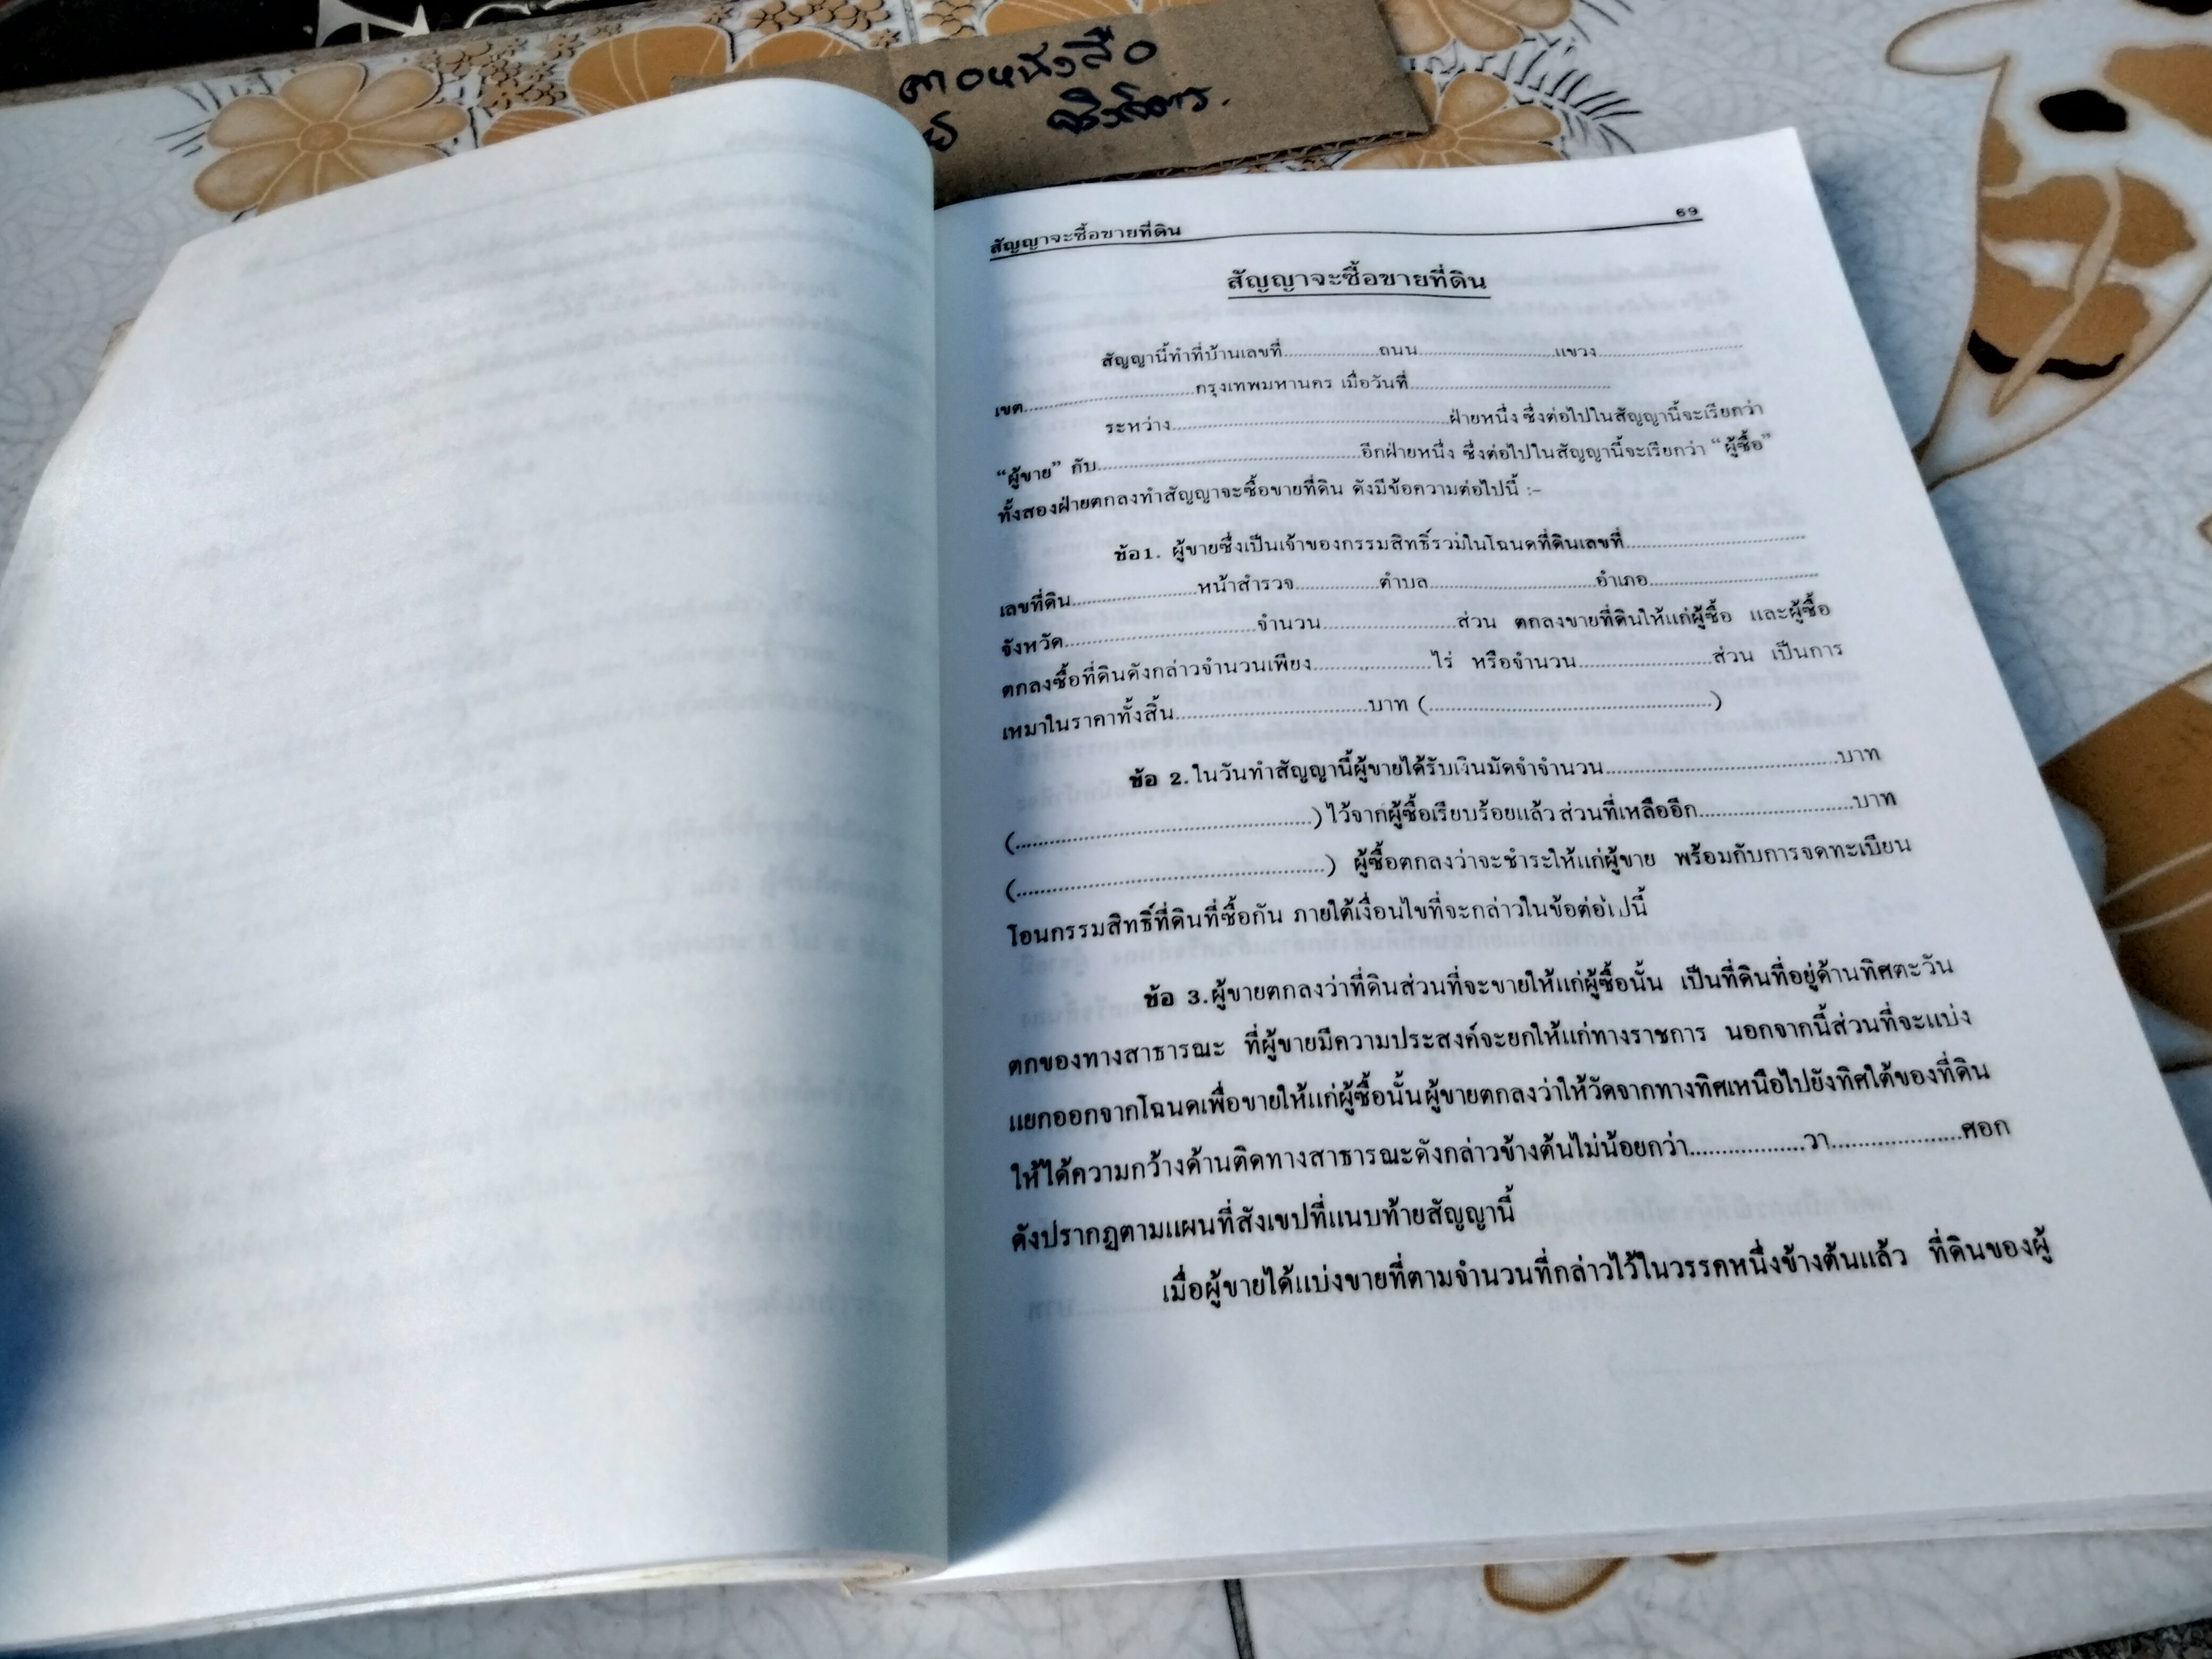 สัญญาจะซื้อขายที่ดิน 69
สัญญาจะซื้อขายที่ดิน
สัญญานี้ทำที่บ้านเลขที่....................ถนน.........................แขวง..........................
เขต..............................กรุงเทพมหานคร เมื่อวันที่...................................
ระหว่าง................................................ฝ่ายหนึ่ง ซึ่งต่อไปในสัญญานี้จะเรียกว่า
“ผู้ขาย” กับ.............................................อีกฝ่ายหนึ่ง ซึ่งต่อไปในสัญญานี้จะเรียกว่า “ผู้ซื้อ”
ทั้งสองฝ่ายตกลงทำสัญญาจะซื้อขายที่ดิน ดังมีข้อความต่อไปนี้ :-
ข้อ1. ผู้ขายซึ่งเป็นเจ้าของกรรมสิทธิ์รวมในโฉนดที่ดินเลขที่..............................
เลขที่ดิน......................หน้าสำรวจ...............ตำบล............................อำเภอ............................
จังหวัด................................จำนวน......................ส่วน ตกลงขายที่ดินให้แก่ผู้ซื้อ และผู้ซื้อ
ตกลงซื้อที่ดินดังกล่าวจำนวนเพียง...................ไร่ หรือจำนวน.....................ส่วน เป็นการ
เหมาในราคาทั้งสิ้น...............................บาท (.............................................)
ข้อ 2. ในวันทำสัญญานี้ผู้ขายได้รับเงินมัดจำจำนวน....................................บาท
(................................................) ไว้จากผู้ซื้อเรียบร้อยแล้ว ส่วนที่เหลืออีก........................บาท
(..................................................) ผู้ซื้อตกลงว่าจะชำระให้แก่ผู้ขาย พร้อมกับการจดทะเบียน
โอนกรรมสิทธิ์ที่ดินที่ซื้อกัน ภายใต้เงื่อนไขที่จะกล่าวในข้อต่อไปนี้
ข้อ 3. ผู้ขายตกลงว่าที่ดินส่วนที่จะขายให้แก่ผู้ซื้อนั้น เป็นที่ดินที่อยู่ด้านทิศตะวัน
ตกของทางสาธารณะ ที่ผู้ขายมีความประสงค์จะยกให้แก่ทางราชการ นอกจากนี้ส่วนที่จะแบ่ง
แยกออกจากโฉนดเพื่อขายให้แก่ผู้ซื้อนั้นผู้ขายตกลงว่าให้วัดจากทางทิศเหนือไปยังทิศใต้ของที่ดิน
ให้ได้ความกว้างด้านติดทางสาธารณะดังกล่าวข้างต้นไม่น้อยกว่า.................วา...................ศอก
ดังปรากฏตามแผนที่สังเขปที่แนบท้ายสัญญานี้
เมื่อผู้ขายได้แบ่งขายที่ตามจำนวนที่กล่าวไว้ในวรรคหนึ่งข้างต้นแล้ว ที่ดินของผู้